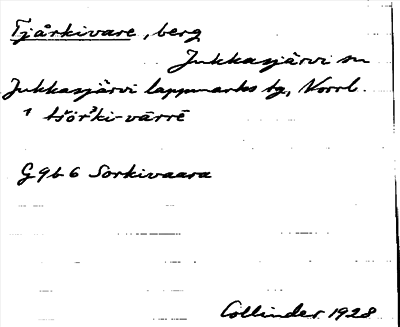 Tjårkivare, berg
Jukkasjärvi sn
Jukkasjärvi lappmarks tg, Norrb.
G9b6 Sorkivaara
Collinder 1928